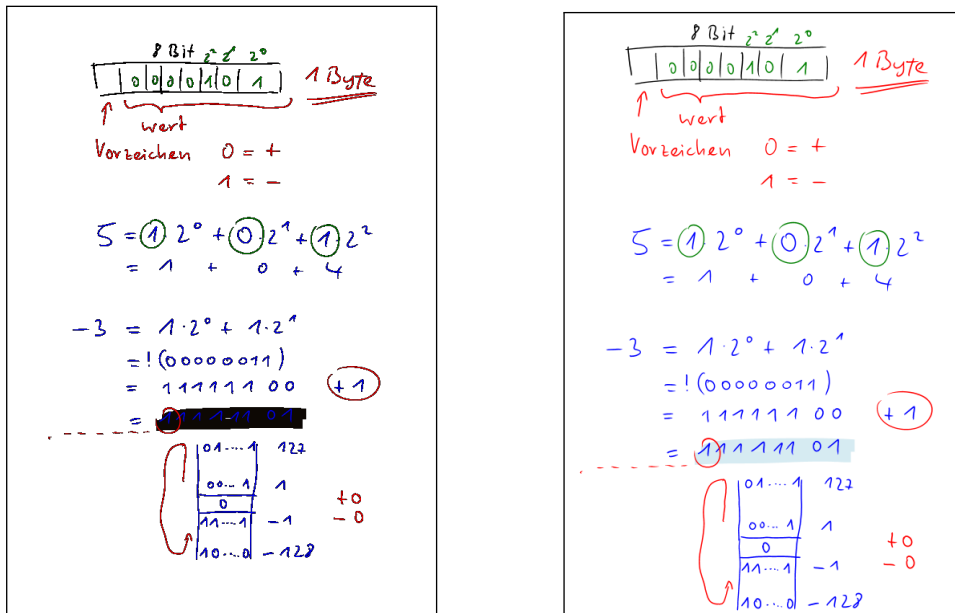 8 Bit 2² 2¹ 2⁰
0 0 0 0 1 0 1 1 Byte
Wert
Vorzeichen 0 = +
1 = −
5 = 1 · 2⁰ + 0 · 2¹ + 1 · 2²
= 1 + 0 + 4
−3 = 1 · 2⁰ + 1 · 2¹
= ! (00000011)
= 111111 00 +1
= 111111 01
01....1 127
00...1 1
0 +0
11....1 −1 −0
10...0 −128
8 Bit 2² 2¹ 2⁰
0 0 0 0 1 0 1 1 Byte
Wert
Vorzeichen 0 = +
1 = −
5 = 1 · 2⁰ + 0 · 2¹ + 1 · 2²
= 1 + 0 + 4
−3 = 1 · 2⁰ + 1 · 2¹
= ! (00000011)
= 111111 00 +1
= 111111 01
01....1 127
00...1 1
0 +0
11....1 −1 −0
10...0 −128